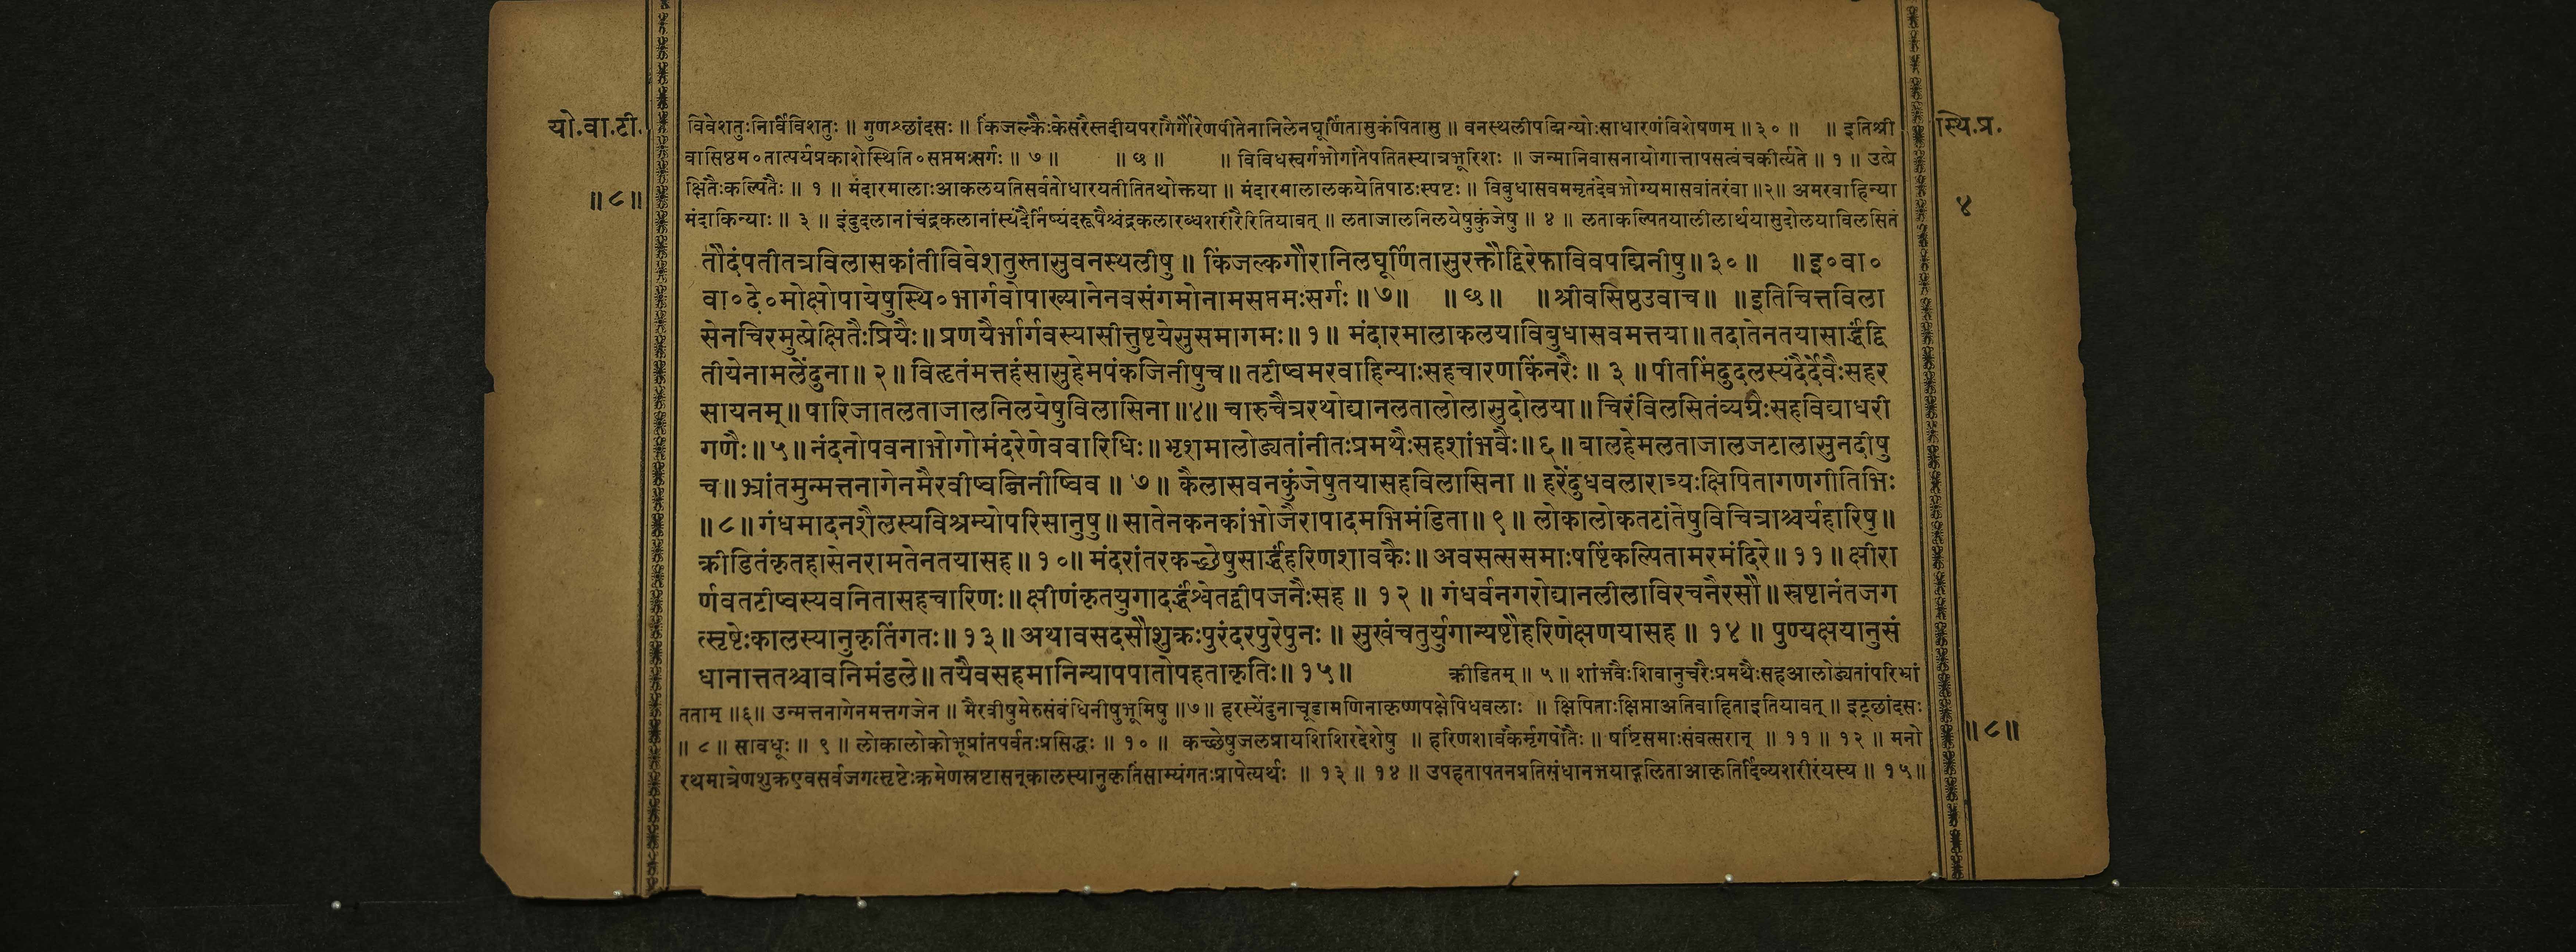 यो.वा.टी.
॥८॥
स्थि.प्र.
४
विवेशतुःनिर्विविशतुः ॥ गुणश्छांदसः ॥ किंजल्कैःकेसरैस्तदीयपरागैर्गौरेणपीतेनानिलेनघूर्णितासुकंपितासु ॥ वनस्थलीपद्मिन्योःसाधारणंविशेषणम् ॥३०॥ ॥ इतिश्री
वासिष्ठम०तात्पर्यप्रकाशेस्थिति०सप्तमःसर्गः ॥ ७ ॥ ॥ ६५ ॥ ॥ विविधस्वर्गभोगांतेपतितस्यात्रभूरिशः ॥ जन्मानिवासनायोगात्तापसत्वंचकीर्त्यते ॥ १ ॥ उत्प्रे
क्षितैःकल्पितैः ॥ १ ॥ मंदारमालाःआकलयतिसर्वतोधारयतीतितथोक्तया ॥ मंदारमालालकयेतिपाठःस्पष्टः ॥ विबुधासवममृतंदेवभोग्यमासवांतरंवा ॥२॥ अमरवाहिन्या
मंदाकिन्याः ॥ ३ ॥ इंदुदलानांचंद्रकलानांस्यंदैर्निष्यंदरूपैश्चंद्रकलारब्धशरीरैरितियावत् ॥ लताजालनिलयेषुकुंजेषु ॥ ४ ॥ लताकल्पितयालीलार्थयासुदोलयाविलसितं
तौदंपतीतत्रविलासकांतीविवेशतुस्तासुवनस्थलीषु ॥ किंजल्कगौरानिलघूर्णितासुरक्तौद्विरेफाविवपद्मिनीषु॥३०॥ ॥इ०वा०
वा०दे०मोक्षोपायेषुस्थि०भार्गवोपाख्यानेनवसंगमोनामसप्तमःसर्गः॥७॥ ॥६५॥ ॥श्रीवसिष्ठउवाच॥ ॥इतिचित्तविला
सेनचिरमुत्प्रेक्षितैःप्रियैः॥प्रणयैर्भार्गवस्यासीत्तुष्टयेसुसमागमः॥१॥ मंदारमालाकलयाविबुधासवमत्तया॥तदातेनतयासार्द्धंद्वि
तीयेनामलेंदुना॥२॥विहृतंमत्तहंसासुहेमपंकजिनीषुच॥तटीष्वमरवाहिन्याःसहचारणकिंनरैः॥ ३ ॥पीतमिंदुदलस्यंदैर्देवैःसहर
सायनम्॥पारिजातलताजालनिलयेषुविलासिना॥४॥ चारुचैत्ररथोद्यानलतालोलासुदोलया॥चिरंविलसितंव्यग्रैःसहविद्याधरी
गणैः॥५॥नंदनोपवनाभोगोमंदरेणेववारिधिः॥भृशमालोड्यतांनीतःप्रमथैःसहशांभवैः॥६॥बालहेमलताजालजटालासुनदीषु
च॥भ्रांतमुन्मत्तनागेनमैरवीष्वब्जिनीष्विव ॥ ७॥ कैलासवनकुंजेषुतयासहविलासिना॥हरेंदुधवलारात्र्यःक्षिपितागणगीतिभिः
॥८॥गंधमादनशैलस्यविश्रम्योपरिसानुषु॥सातेनकनकांभोजैरापादमभिमंडिता॥९॥ लोकालोकतटांतेषुविचित्राश्चर्यहारिषु॥
क्रीडितंकृतहासेनरामतेनतयासह॥१०॥मंदरांतरकच्छेषुसार्द्धंहरिणशावकैः॥अवसत्ससमाःषष्टिंकल्पितामरमंदिरे॥११॥क्षीरा
र्णवतटीष्वस्यवनितासहचारिणः॥क्षीणंकृतयुगादर्द्धंश्वेतद्वीपजनैःसह॥ १२॥ गंधर्वनगरोद्यानलीलाविरचनैरसौ॥स्रष्टानंतजग
त्सृष्टेःकालस्यानुकृतिंगतः॥१३॥अथावसदसौशुक्रःपुरंदरपुरेपुनः॥ सुखंचतुर्युगान्यष्टौहरिणेक्षणयासह ॥ १४॥ पुण्यक्षयानुसं
धानात्ततश्चावनिमंडले॥तयैवसहमानिन्यापपातोपहताकृतिः॥१५॥ क्रीडितम् ॥ ५ ॥ शांभवैःशिवानुचरैःप्रमथैःसहआलोड्यतांपरिभ्रां
तताम् ॥६॥ उन्मत्तनागेनमत्तगजेन ॥ मैरवीषुमेरुसंबंधिनीषुभूमिषु ॥७॥ हरस्येंदुनाचूडामणिनाकृष्णपक्षेपिधवलाः ॥ क्षिपिताःक्षिप्ताअतिवाहिताइतियावत् ॥ इट्छांदसः
॥ ८ ॥ सावधूः ॥ ९ ॥ लोकालोकोभूप्रांतपर्वतःप्रसिद्धः ॥ १० ॥ कच्छेषुजलप्रायशिशिरदेशेषु ॥ हरिणशावकैर्मृगपोतैः ॥ षष्टिंसमाःसंवत्सरान् ॥ ११ ॥ १२ ॥ मनो
रथमात्रेणशुक्रएवसर्वजगत्सृष्टेःक्रमेणस्रष्टासन्कालस्यानुकृतिंसाम्यंगतःप्रापेत्यर्थः ॥ १३ ॥ १४ ॥ उपहतापतनप्रतिसंधानभयाद्गलिताआकृतिर्दिव्यशरीरंयस्य ॥ १५॥
॥८॥